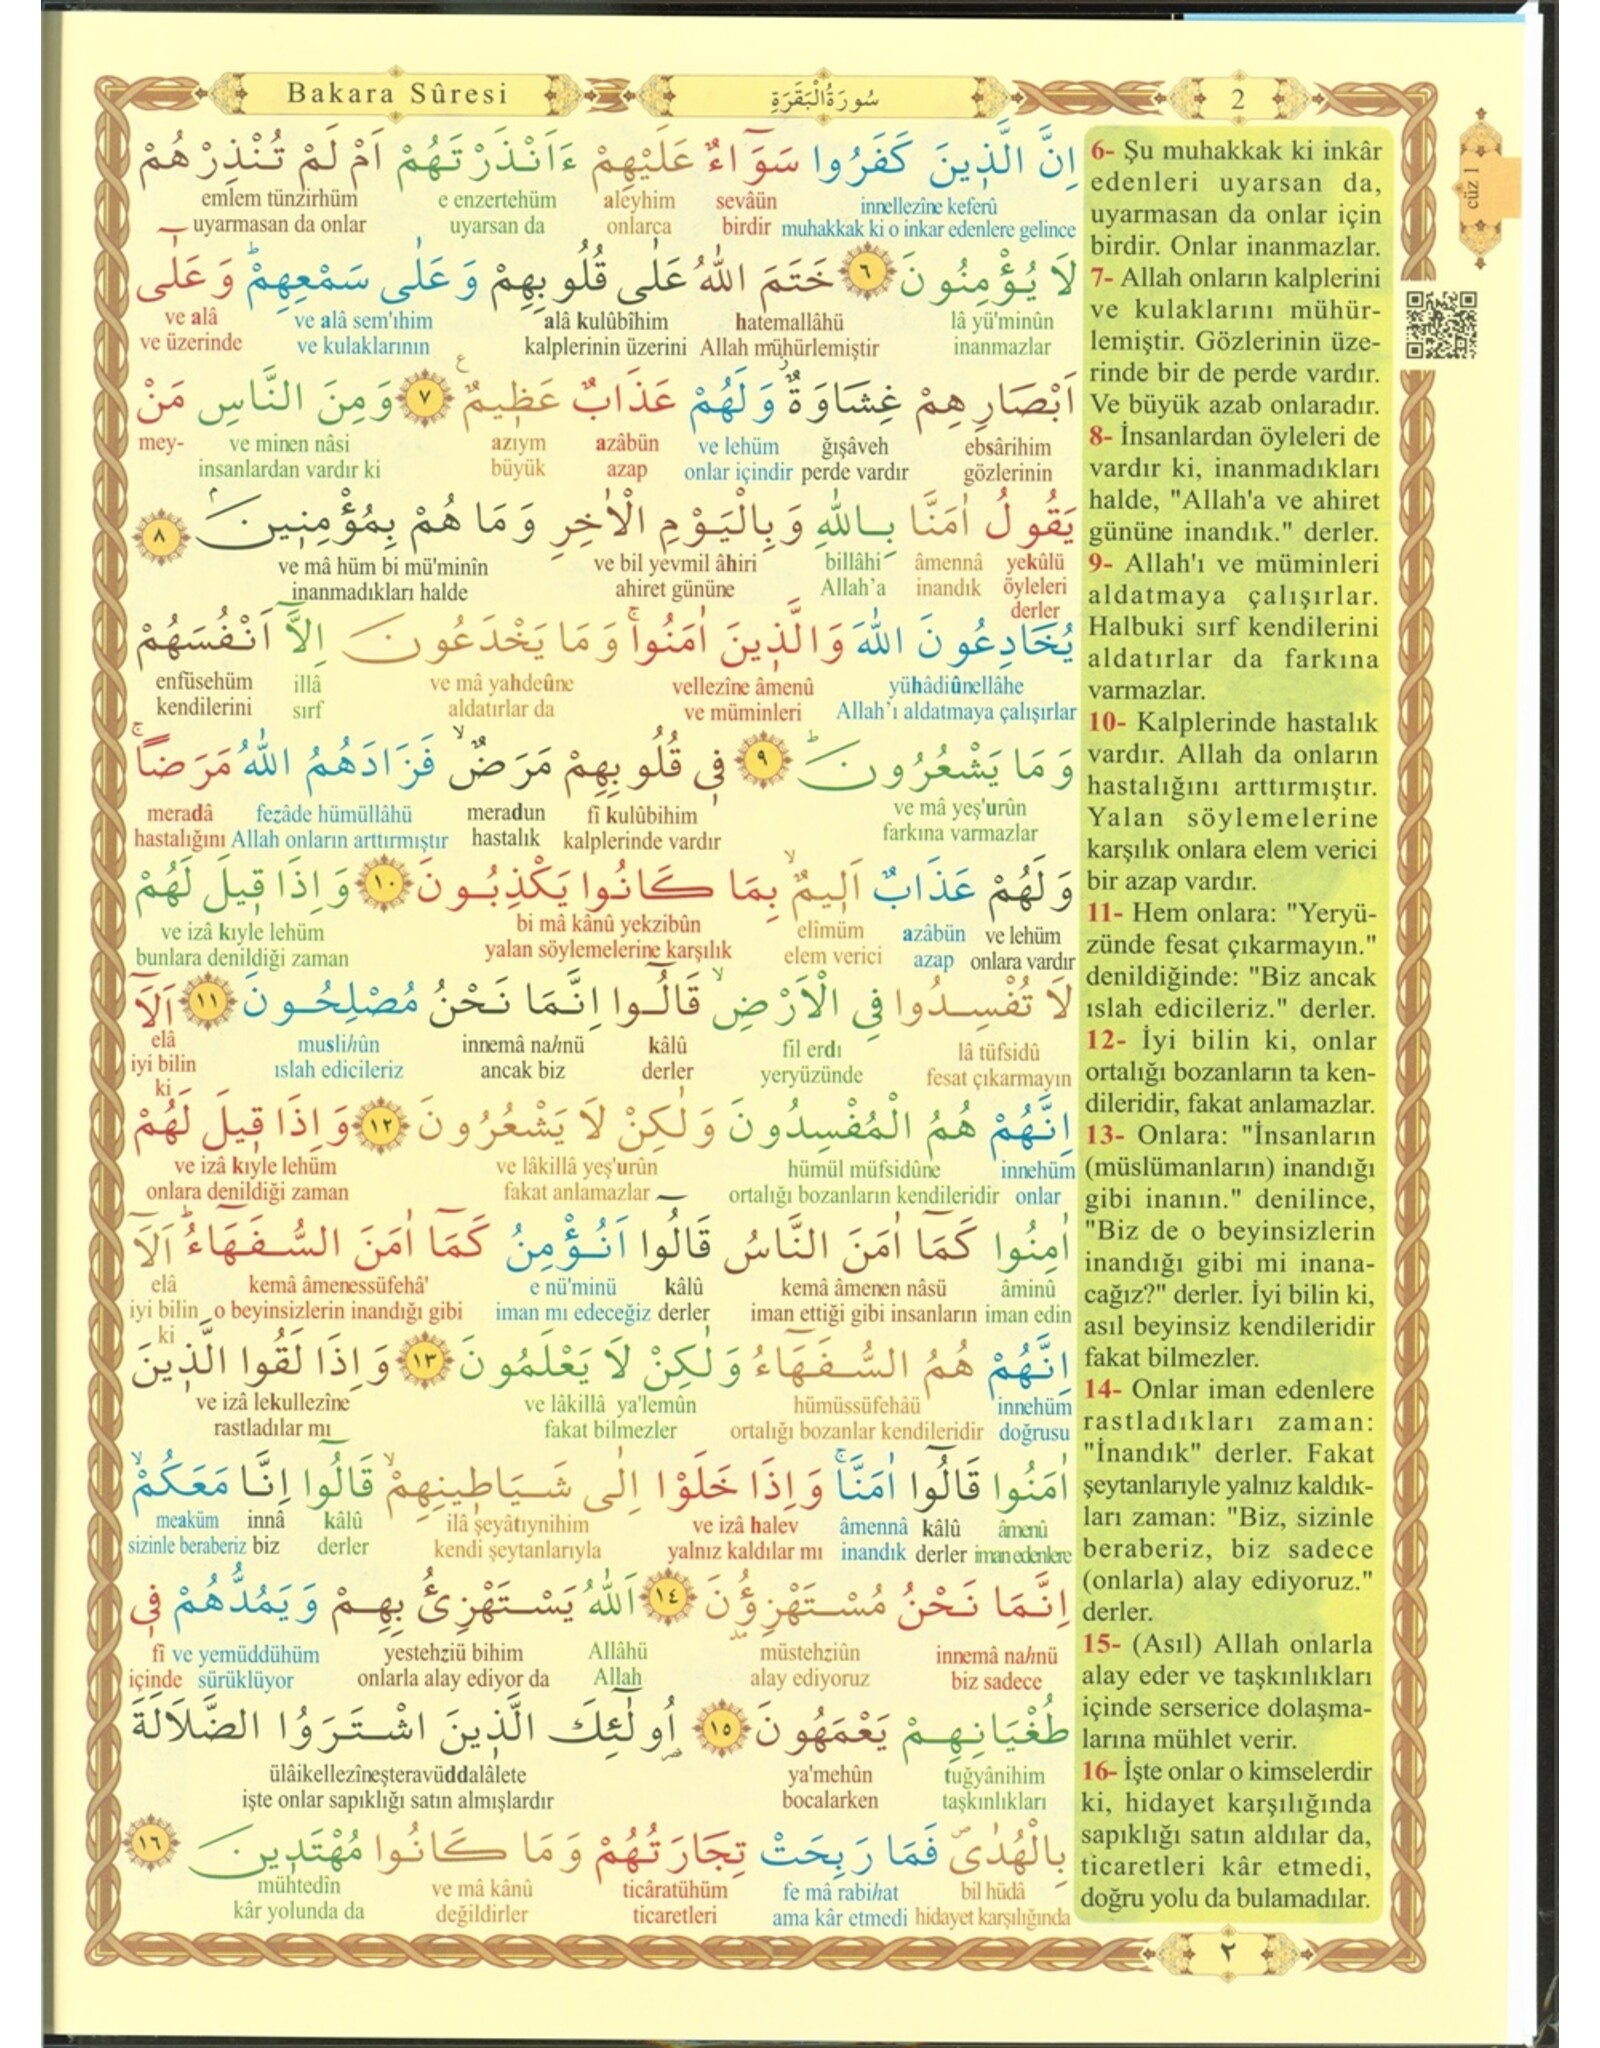 Bakara Sûresi
سُورَةُ الْبَقَرَةِ
2
cüz 1
اِنَّ الَّذ۪ينَ كَفَرُوا سَوَٓاءٌ عَلَيْهِمْ ءَاَنْذَرْتَهُمْ اَمْ لَمْ تُنْذِرْهُمْ
innellezîne keferû sevâün aleyhim e enzertehüm emlem tünzirhüm
muhakkak ki o inkar edenlere gelince birdir onlarca uyarsan da uyarmasan da onlar
لَا يُؤْمِنُونَ ﴿٦﴾ خَتَمَ اللّٰهُ عَلٰى قُلُوبِهِمْ وَعَلٰى سَمْعِهِمْۜ وَعَلٰٓى
lâ yü'minûn hatemallâhü alâ kulûbîhim ve alâ sem'ıhim ve alâ
inanmazlar Allah mühürlemiştir kalplerinin üzerini ve kulaklarının ve üzerinde
اَبْصَارِهِمْ غِشَاوَةٌۘ وَلَهُمْ عَذَابٌ عَظ۪يمٌ۟ ﴿٧﴾ وَمِنَ النَّاسِ مَنْ
ebsârihim ğışâveh ve lehüm azâbün azıym ve minen nâsi mey-
gözlerinin perde vardır onlar içindir azap büyük insanlardan vardır ki
يَقُولُ اٰمَنَّا بِاللّٰهِ وَبِالْيَوْمِ الْاٰخِرِ وَمَا هُمْ بِمُؤْمِن۪ينَۢ ﴿٨﴾
yekûlü âmennâ billâhi ve bil yevmil âhiri ve mâ hüm bi mü'minîn
öyleleri inandık Allah’a ahiret gününe inanmadıkları halde
derler
يُخَادِعُونَ اللّٰهَ وَالَّذ۪ينَ اٰمَنُواۚ وَمَا يَخْدَعُونَ اِلَّٓا اَنْفُسَهُمْ
yühâdiûnellâhe vellezîne âmenû ve mâ yahdeûne illâ enfüsehüm
Allah’ı aldatmaya çalışırlar ve müminleri aldatırlar da sırf kendilerini
وَمَا يَشْعُرُونَۜ ﴿٩﴾ ف۪ي قُلُوبِهِمْ مَرَضٌۙ فَزَادَهُمُ اللّٰهُ مَرَضًاۚ
ve mâ yeş'urûn fî kulûbihim meradun fezâde hümüllâhü meradâ
farkına varmazlar kalplerinde vardır hastalık Allah onların arttırmıştır hastalığını
وَلَهُمْ عَذَابٌ اَل۪يمٌۙ بِمَا كَانُوا يَكْذِبُونَ ﴿١٠﴾ وَاِذَا ق۪يلَ لَهُمْ
ve lehüm azâbün elîmüm bi mâ kânû yekzibûn ve izâ kıyle lehüm
onlara vardır azap elem verici yalan söylemelerine karşılık bunlara denildiği zaman
لَا تُفْسِدُوا فِي الْاَرْضِۙ قَالُٓوا اِنَّمَا نَحْنُ مُصْلِحُونَ ﴿١١﴾ اَلَٓا
lâ tüfsidû fil erdı kâlû innemâ nahnü muslihûn elâ
fesat çıkarmayın yeryüzünde derler ancak biz ıslah edicileriz iyi bilin
ki
اِنَّهُمْ هُمُ الْمُفْسِدُونَ وَلٰكِنْ لَا يَشْعُرُونَ ﴿١٢﴾ وَاِذَا ق۪يلَ لَهُمْ
innehüm hümül müfsidûne ve lâkillâ yeş'urûn ve izâ kıyle lehüm
onlar ortalığı bozanların kendileridir fakat anlamazlar onlara denildiği zaman
اٰمِنُوا كَمَٓا اٰمَنَ النَّاسُ قَالُٓوا اَنُؤْمِنُ كَمَٓا اٰمَنَ السُّفَهَٓاءُۜ اَلَٓا
âminû kemâ âmenen nâsü kâlû e nü'minü kemâ âmenessüfehâ' elâ
iman edin iman ettiği gibi insanların derler iman mı edeceğiz o beyinsizlerin inandığı gibi iyi bilin
ki
اِنَّهُمْ هُمُ السُّفَهَٓاءُ وَلٰكِنْ لَا يَعْلَمُونَ ﴿١٣﴾ وَاِذَا لَقُوا الَّذ۪ينَ
innehüm hümüssüfehâü ve lâkillâ ya'lemûn ve izâ lekullezîne
doğrusu ortalığı bozanlar kendileridir fakat bilmezler rastladılar mı
اٰمَنُوا قَالُٓوا اٰمَنَّاۚ وَاِذَا خَلَوْا اِلٰى شَيَاط۪ينِهِمْۙ قَالُٓوا اِنَّا مَعَكُمْۙ
âmenû kâlû âmennâ ve izâ halev ilâ şeyâtıynihim kâlû innâ meaküm
iman edenlere derler inandık yalnız kaldılar mı kendi şeytanlarıyla derler biz sizinle beraberiz
اِنَّمَا نَحْنُ مُسْتَهْزِؤُ۫نَ ﴿١٤﴾ اَللّٰهُ يَسْتَهْزِئُ بِهِمْ وَيَمُدُّهُمْ ف۪ي
innemâ nahnü müstehziûn Allâhü yestehziü bihim ve yemüddühüm fî
biz sadece alay ediyoruz Allah onlarla alay ediyor da sürüklüyor içinde
طُغْيَانِهِمْ يَعْمَهُونَ ﴿١٥﴾ اُو۬لٰٓئِكَ الَّذ۪ينَ اشْتَرَوُا الضَّلَالَةَ
tuğyânihim ya'mehûn ülâikellezîneşteravüddalâlete
taşkınlıkları bocalarken işte onlar sapıklığı satın almışlardır
بِالْهُدٰىۖ فَمَا رَبِحَتْ تِجَارَتُهُمْ وَمَا كَانُوا مُهْتَد۪ينَ ﴿١٦﴾
bil hüdâ fe mâ rabihat ticâratühüm ve mâ kânû mühtedîn
hidayet karşılığında ama kâr etmedi ticaretleri değildirler kâr yolunda da
6- Şu muhakkak ki inkâr
edenleri uyarsan da,
uyarmasan da onlar için
birdir. Onlar inanmazlar.
7- Allah onların kalplerini
ve kulaklarını mühür-
lemiştir. Gözlerinin üze-
rinde bir de perde vardır.
Ve büyük azab onlaradır.
8- İnsanlardan öyleleri de
vardır ki, inanmadıkları
halde, "Allah'a ve ahiret
gününe inandık." derler.
9- Allah'ı ve müminleri
aldatmaya çalışırlar.
Halbuki sırf kendilerini
aldatırlar da farkına
varmazlar.
10- Kalplerinde hastalık
vardır. Allah da onların
hastalığını arttırmıştır.
Yalan söylemelerine
karşılık onlara elem verici
bir azap vardır.
11- Hem onlara: "Yeryü-
zünde fesat çıkarmayın."
denildiğinde: "Biz ancak
ıslah edicileriz." derler.
12- İyi bilin ki, onlar
ortalığı bozanların ta ken-
dileridir, fakat anlamazlar.
13- Onlara: "İnsanların
(müslümanların) inandığı
gibi inanın." denilince,
"Biz de o beyinsizlerin
inandığı gibi mi inana-
cağız?" derler. İyi bilin ki,
asıl beyinsiz kendileridir
fakat bilmezler.
14- Onlar iman edenlere
rastladıkları zaman:
"İnandık" derler. Fakat
şeytanlarıyle yalnız kaldık-
ları zaman: "Biz, sizinle
beraberiz, biz sadece
(onlarla) alay ediyoruz."
derler.
15- (Asıl) Allah onlarla
alay eder ve taşkınlıkları
içinde serserice dolaşma-
larına mühlet verir.
16- İşte onlar o kimselerdir
ki, hidayet karşılığında
sapıklığı satın aldılar da,
ticaretleri kâr etmedi,
doğru yolu da bulamadılar.
٢